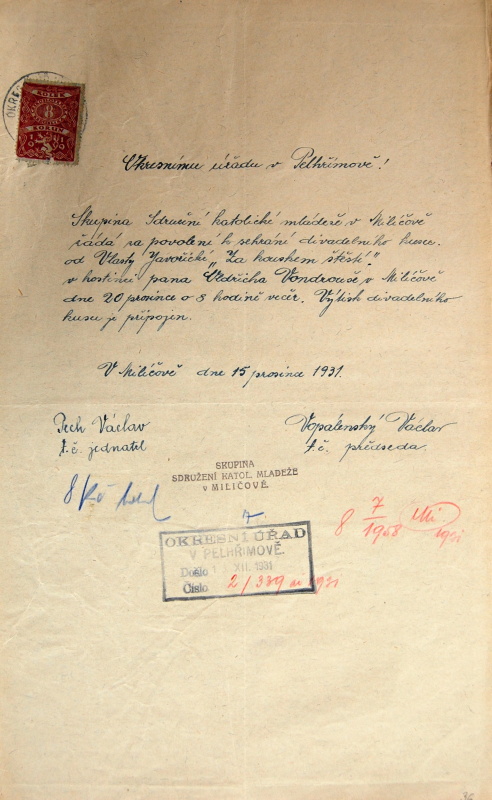 OKRES
KOLEK
8
KORUN
Okresnímu úřadu v Pelhřimově!
Skupina Sdružení katolické mládeže v Miličově
žádá za povolení k sehrání divadelního kusu
od Vlasty Javořické „Za kouskem štěstí"
v hostinci pana Oldřicha Vondrouše v Miličově
dne 20 prosince o 8 hodině večer. Výtisk divadelního
kusu je připojen.
V Miličově dne 15 prosince 1931.
Pech Václav
t.č. jednatel
Vopálenský Václav
t.č. předseda.
SKUPINA
SDRUŽENÍ KATOL. MLÁDEŽE
v MILIČOVĚ.
8 Kč
7.
8 7/1958
1931
OKRESNÍ ÚŘAD
V PELHŘIMOVĚ.
Došlo XII. 1931
Číslo 2/339 1931
36